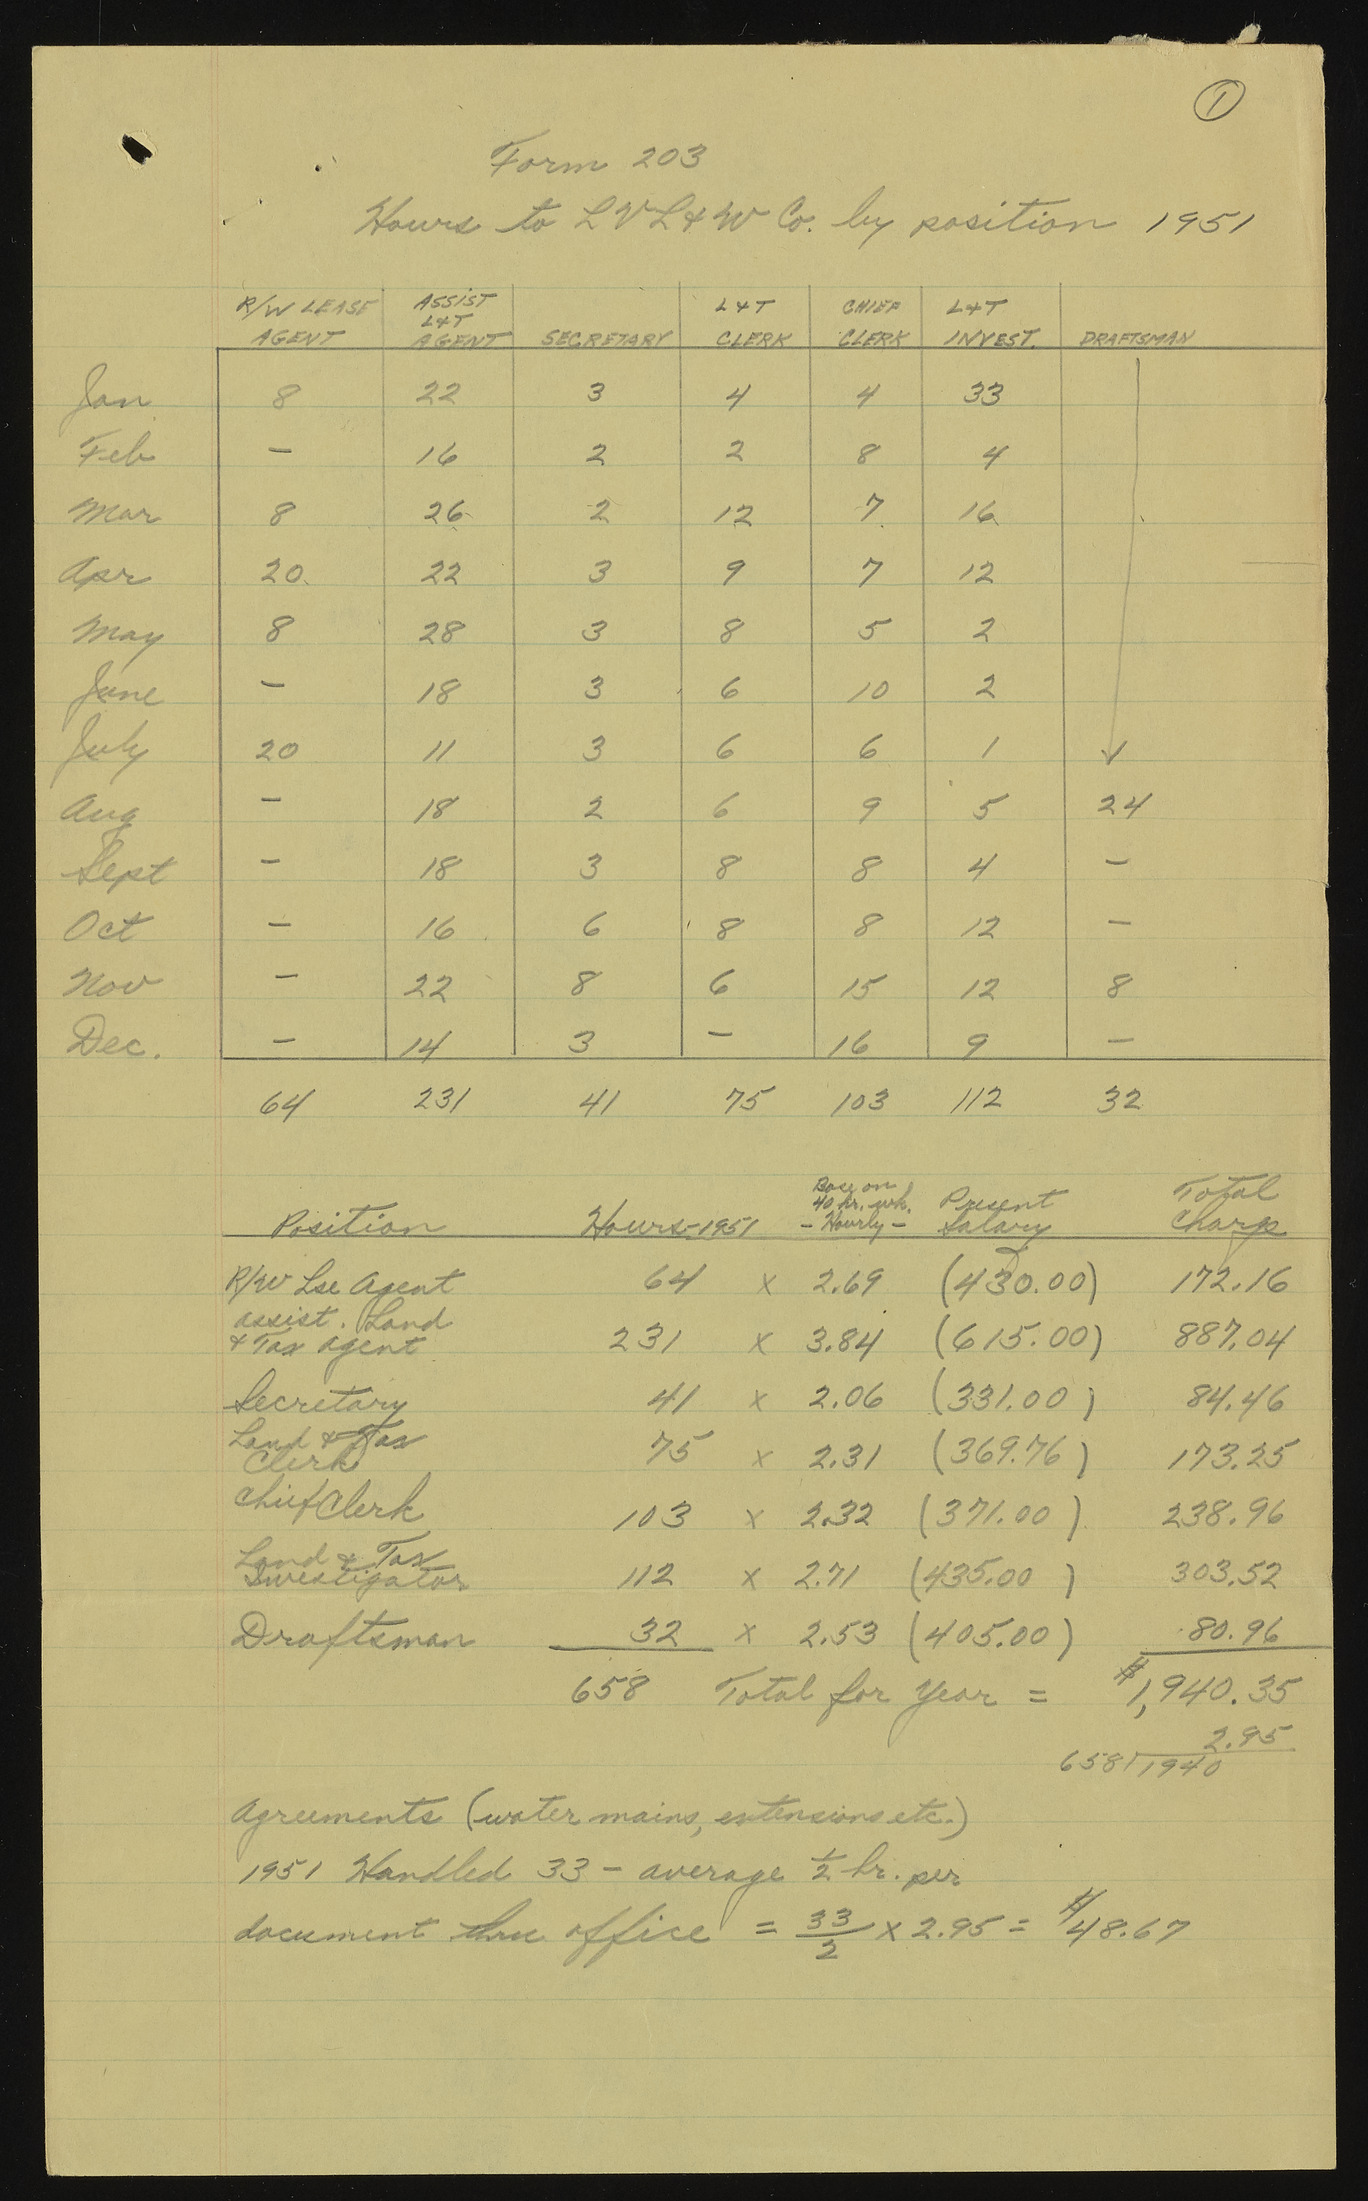 1
Form 203
Hours to L V L & W Co. by position 1951
R/W LEASE AGENT | ASSIST L&T AGENT | SECRETARY | L&T CLERK | CHIEF CLERK | L&T INVEST. | DRAFTSMAN
Jan 8 22 3 4 4 33
Feb — 16 2 2 8 4
Mar 8 26 2 12 7 16
Apr 20 22 3 9 7 12
May 8 28 3 8 5 2
June — 18 3 6 10 2
July 20 11 3 6 6 1
Aug — 18 2 6 9 5 24
Sept — 18 3 8 8 4 —
Oct — 16 6 8 8 12 —
Nov — 22 8 6 15 12 8
Dec. — 14 3 — 16 9 —
64 231 41 75 103 112 32
Position | Hours-1951 | Base on 40 hr. wk. - Hourly - | Present Salary | Total Charge
R/W Lse Agent 64 x 2.69 (430.00) 172.16
assist. Land
& Tax agent 231 x 3.84 (615.00) 887.04
Secretary 41 x 2.06 (331.00) 84.46
Land & Tax
Clerk 75 x 2.31 (369.76) 173.25
Chief Clerk 103 x 2.32 (371.00) 238.96
Land & Tax
Investigator 112 x 2.71 (435.00) 303.52
Draftsman 32 x 2.53 (405.00) 80.96
658 Total for Year = $1,940.35
2.95
658 1940
Agreements (water mains, extensions etc.)
1951 Handled 33 - average 1/2 hr. per
document thru office = 33/2 x 2.95 = $48.67